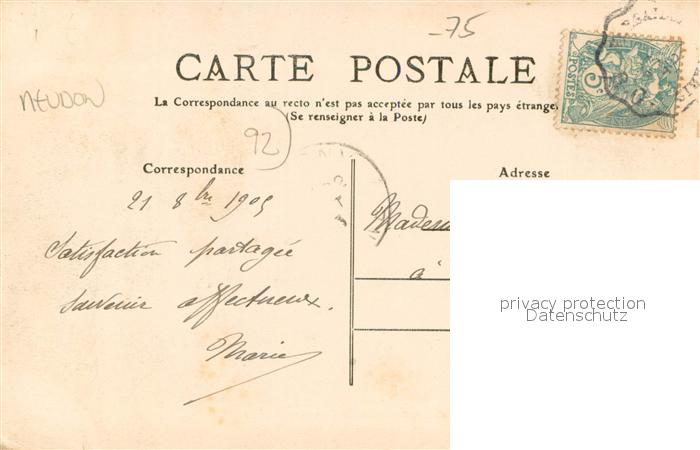 -75
CARTE POSTALE
MEUDON
La Correspondance au recto n'est pas acceptée par tous les pays étrange
(Se renseigner à la Poste)
92
Correspondance
Adresse
21 8bre 1905
Satisfaction partagée
Souvenir affectueux.
Marie
à
POSTES
5
privacy protection
Datenschutz